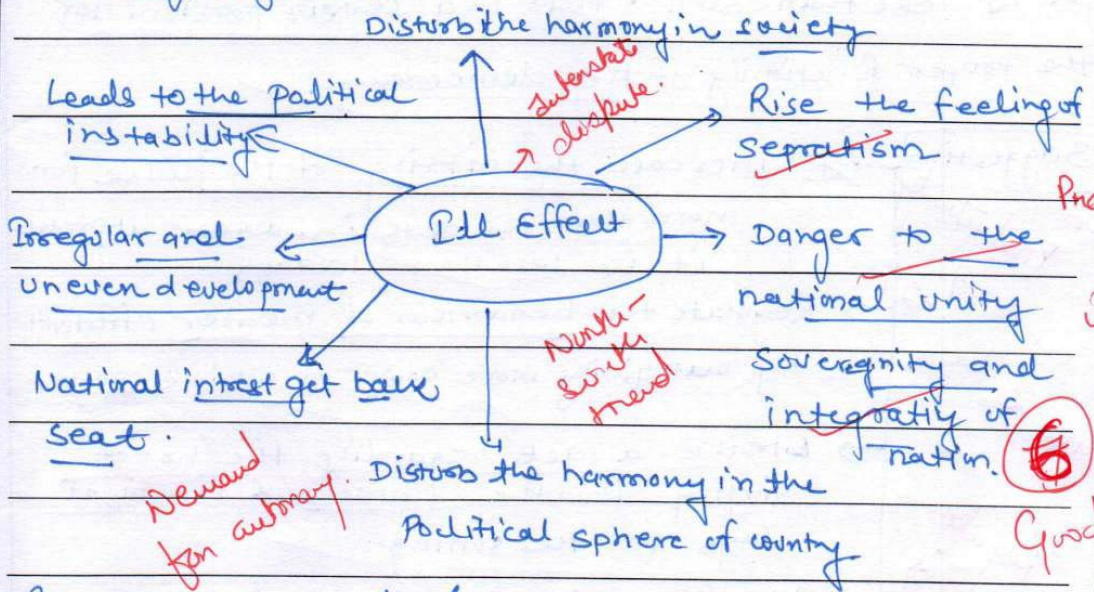 Disturb the harmony in society
Leads to the political
instability
Interstate
dispute.
Rise the feeling of
Sepratism
Irregular and
uneven development
Ill Effect
Danger to the
national unity
Sovereginity and
integratiy of
nation.
National intrest get back
seat.
North-
south
Demand
for autonomy.
Disturb the harmony in the
Political sphere of country
6
Good